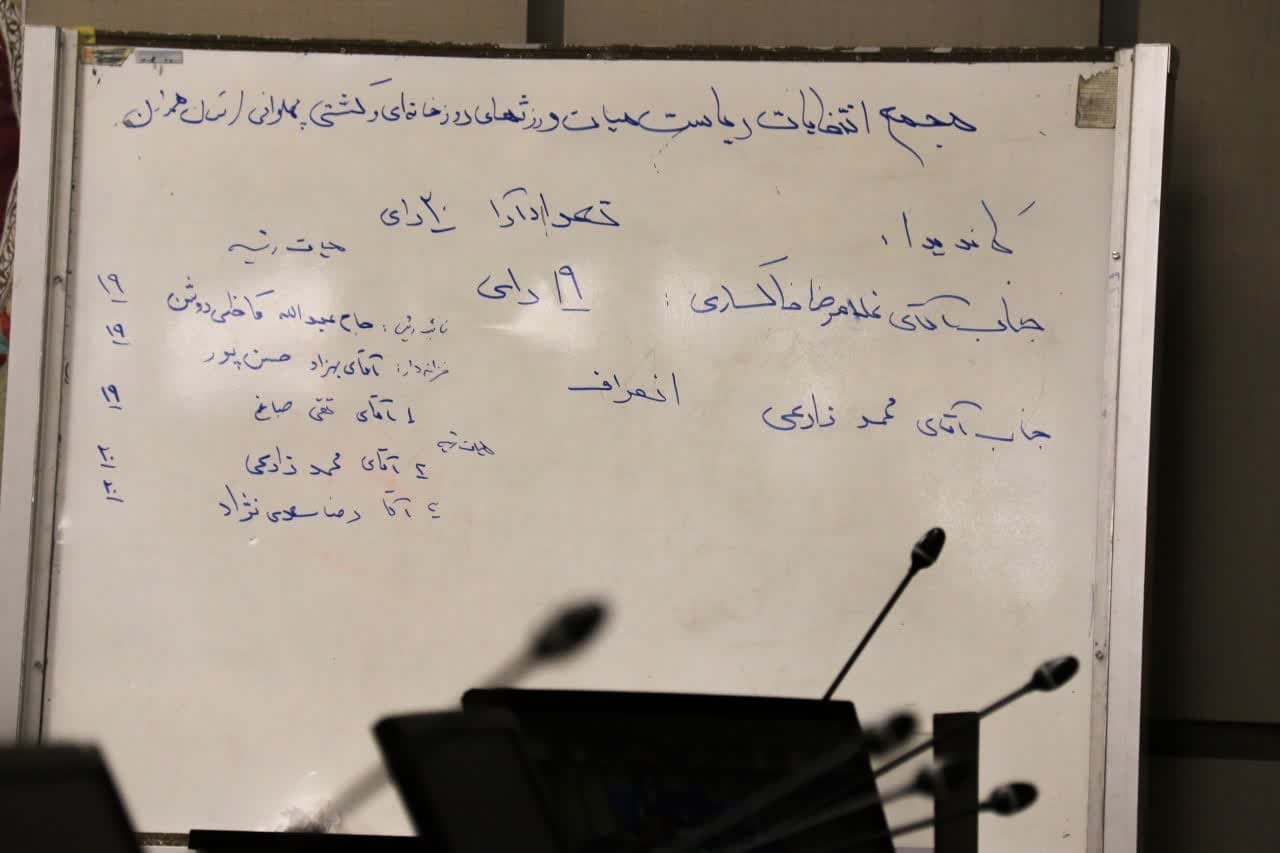 مجمع انتخابات ریاست هیات ورزشهای زورخانه‌ای و کشتی پهلوانی استان هرمزگان
کاندیدا:
تعداد آرا ۲۰ رای
جناب آقای غلامرضا خاکساری : ۱۹ رای
جناب آقای محمد زارعی انصراف
هیات رئیسه
نائب رئیس: حاج عبدالله کاظمی روشن ۱۹
خزانه‌دار: آقای بهزاد حسن پور ۱۹
۱ آقای تقی صباغ ۱۹
هیات رئیسه
۲ آقای محمد زارعی ۲۰
آقا رضا سعدی نژاد ۲۰